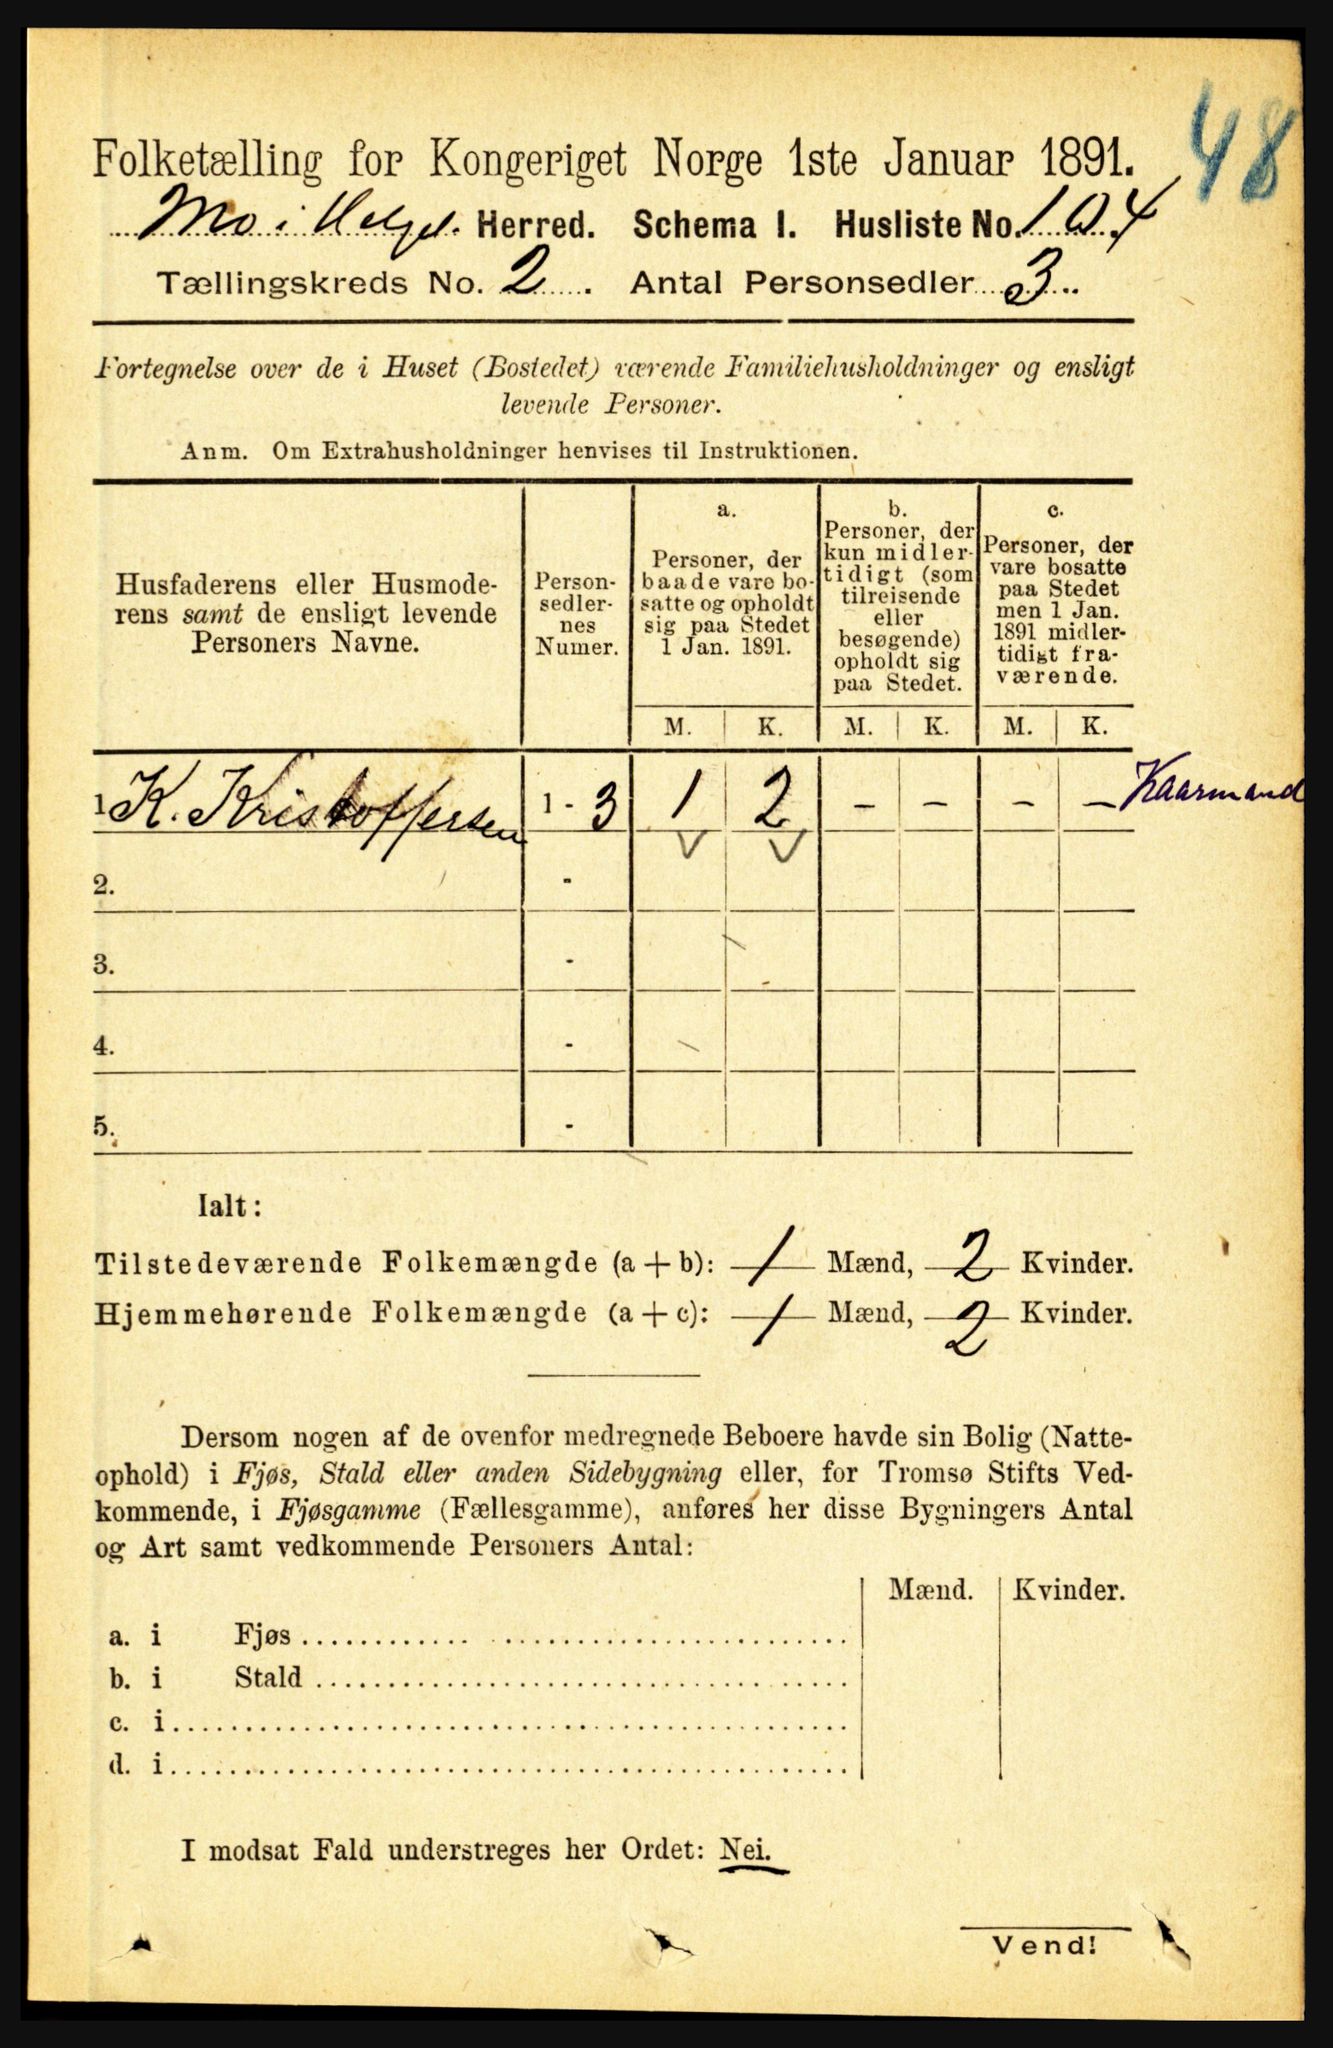 48
Folketælling for Kongeriget Norge 1ste Januar 1891.
Mo i Helgel. Herred. Schema I. Husliste No. 104
Tællingskreds No. 2. Antal Personsedler 3.
Fortegnelse over de i Huset (Bostedet) værende Familiehusholdninger og ensligt
levende Personer.
Anm. Om Extrahusholdninger henvises til Instruktionen.
Husfaderens eller Husmode-
rens samt de ensligt levende
Personers Navne.
Person-
sedler-
nes
Numer.
a.
Personer, der
baade vare bo-
satte og opholdt
sig paa Stedet
1 Jan. 1891.
b.
Personer, der
kun midler-
tidigt (som
tilreisende
eller
besøgende)
opholdt sig
paa Stedet.
c.
Personer, der
vare bosatte
paa Stedet
men 1 Jan.
1891 midler-
tidigt fra-
værende.
M. K. M. K. M. K.
1. K. Kristoffersen 1 - 3 1 2 - - - - Kaarmand
2. -
3. -
4. -
5. -
Ialt:
Tilstedeværende Folkemængde (a + b): 1 Mænd, 2 Kvinder.
Hjemmehørende Folkemængde (a + c): 1 Mænd, 2 Kvinder.
Dersom nogen af de ovenfor medregnede Beboere havde sin Bolig (Natte-
ophold) i Fjøs, Stald eller anden Sidebygning eller, for Tromsø Stifts Ved-
kommende, i Fjøsgamme (Fællesgamme), anføres her disse Bygningers Antal
og Art samt vedkommende Personers Antal:
Mænd. Kvinder.
a. i Fjøs
b. i Stald
c. i
d. i
I modsat Fald understreges her Ordet: Nei.
Vend!